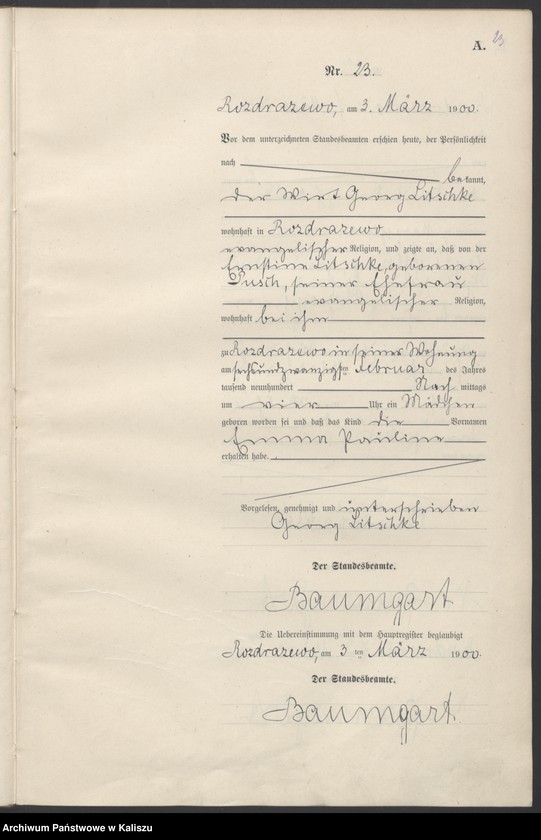 A. 23
Nr. 23.
Rozdrazewo, am 3. März 1900.
Vor dem unterzeichneten Standesbeamten erschien heute, der Persönlichkeit
nach
bekannt,
der Wirt Georg Litschke
wohnhaft in Rozdrazewo
evangelischer Religion, und zeigte an, daß von der
Ernstine Litschke, geborenen
Pusch, seiner Ehefrau
evangelischer Religion,
wohnhaft bei ihm
zu Rozdrazewo in seiner Wohnung
am sechsundzwanzigsten Februar des Jahres
tausend neunhundert Nach mittags
um vier Uhr ein Mädchen
geboren worden sei und daß das Kind die Vornamen
Emma Pauline
erhalten habe.
Vorgelesen, genehmigt und unterschrieben
Georg Litschke
Der Standesbeamte.
Baumgart
Die Uebereinstimmung mit dem Hauptregister beglaubigt
Rozdrazewo, am 3 ten März 1900.
Der Standesbeamte.
Baumgart.
Archiwum Państwowe w Kaliszu